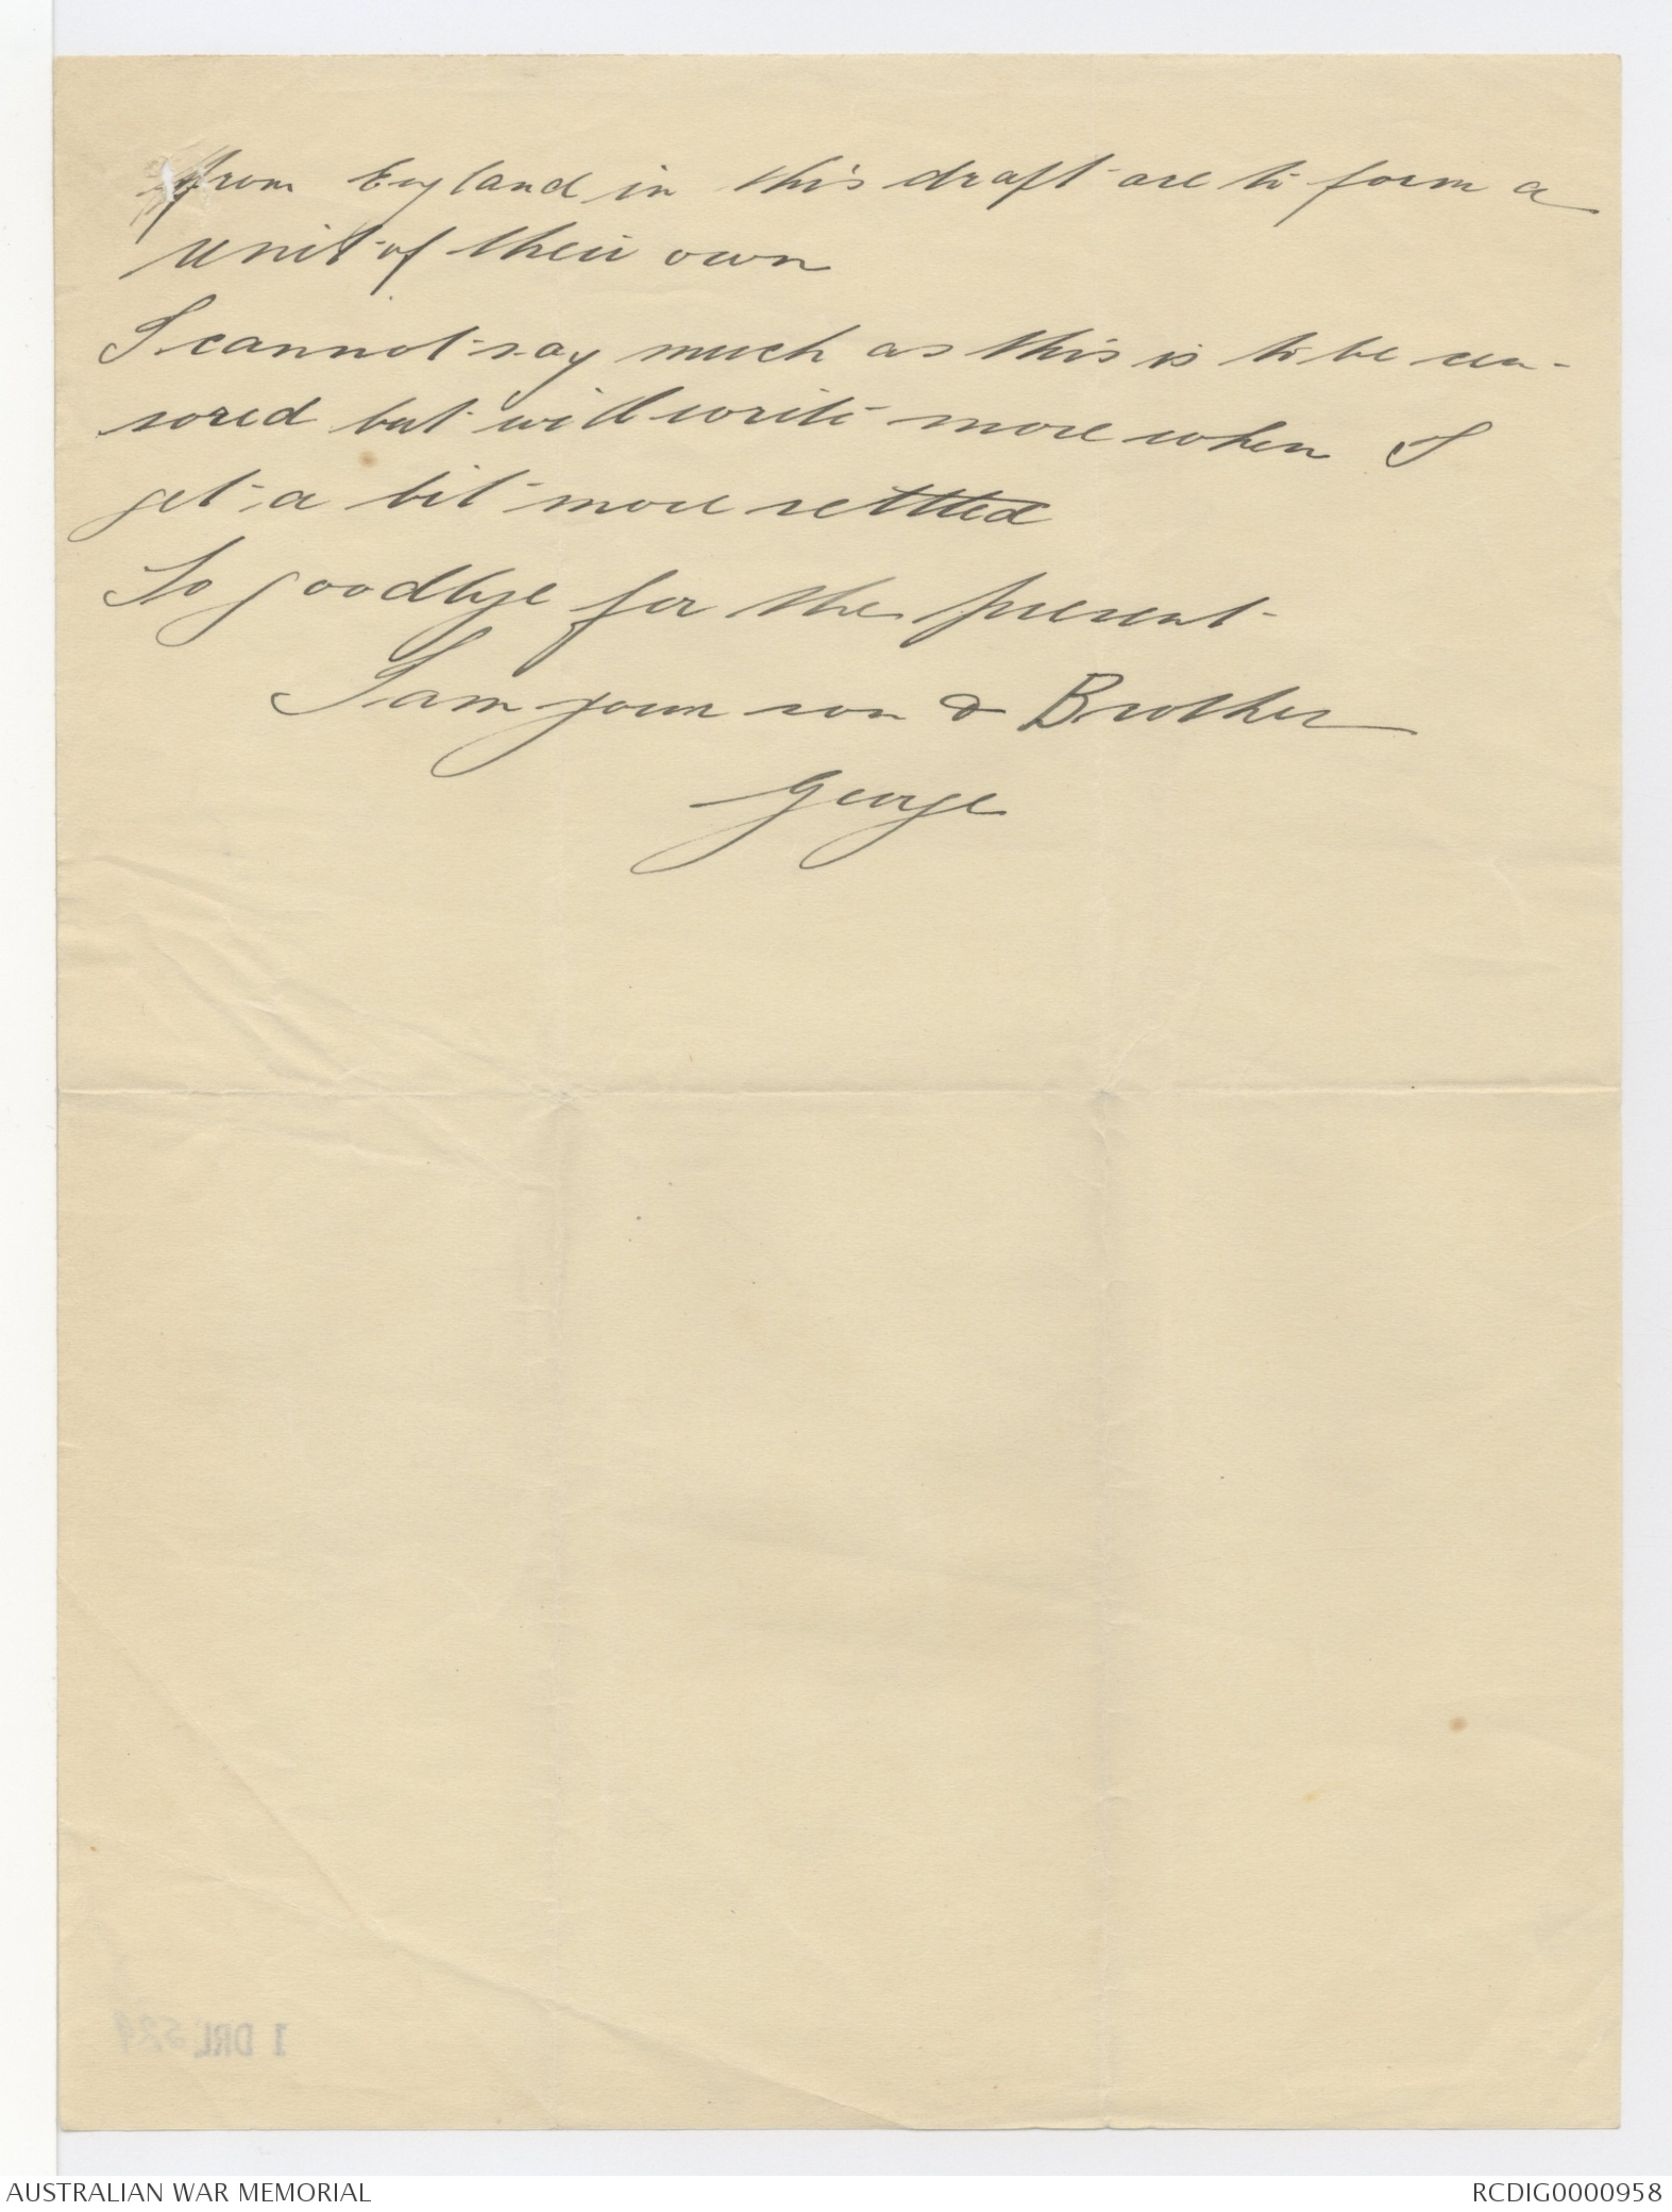 from England in this draft are to form a
unit of their own
I cannot say much as this is to be cen-
sored but will write more when I
get a bit more settled
So goodbye for the present
I am your son & Brother
George
1 DRL
AUSTRALIAN WAR MEMORIAL
RCDIG0000958